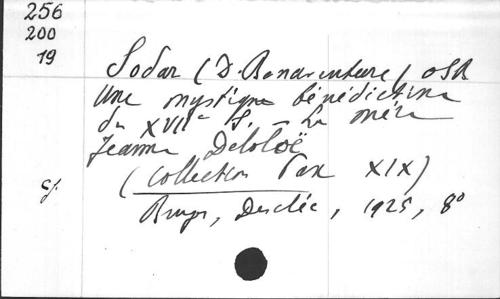 256
200
19
Sodar (D. Bonaventure) OSB
Une mystique bénédictine
du XVIIe S. - La mère
Jeanne Deloloë
(Collection Pax XIX)
cf.
Bruges, Desclée, 1925, 8°